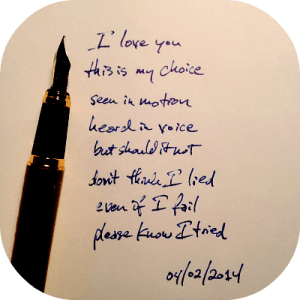 I love you
this is my choice
seen in motion
heard in voice
but should it not
don't think I lied
even if I fail
please know I tried
04/02/2014